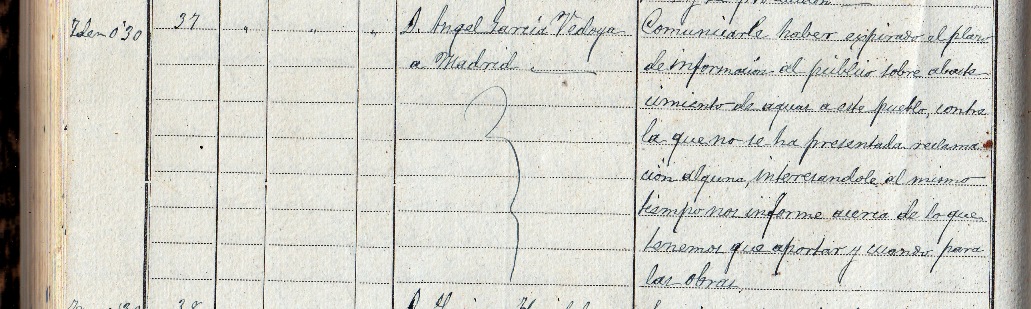 Idem 030 37 " " " D. Angel García Vedoya
a Madrid
Comunicarle haber expirado el plazo
de información al público sobre abaste
cimiento de aguas a este pueblo, contra
la que no se ha presentada reclama
ción alguna, interesandole al mismo
tiempo nos informe acerca de lo que
tenemos que aportar y cuando para
las obras.
38